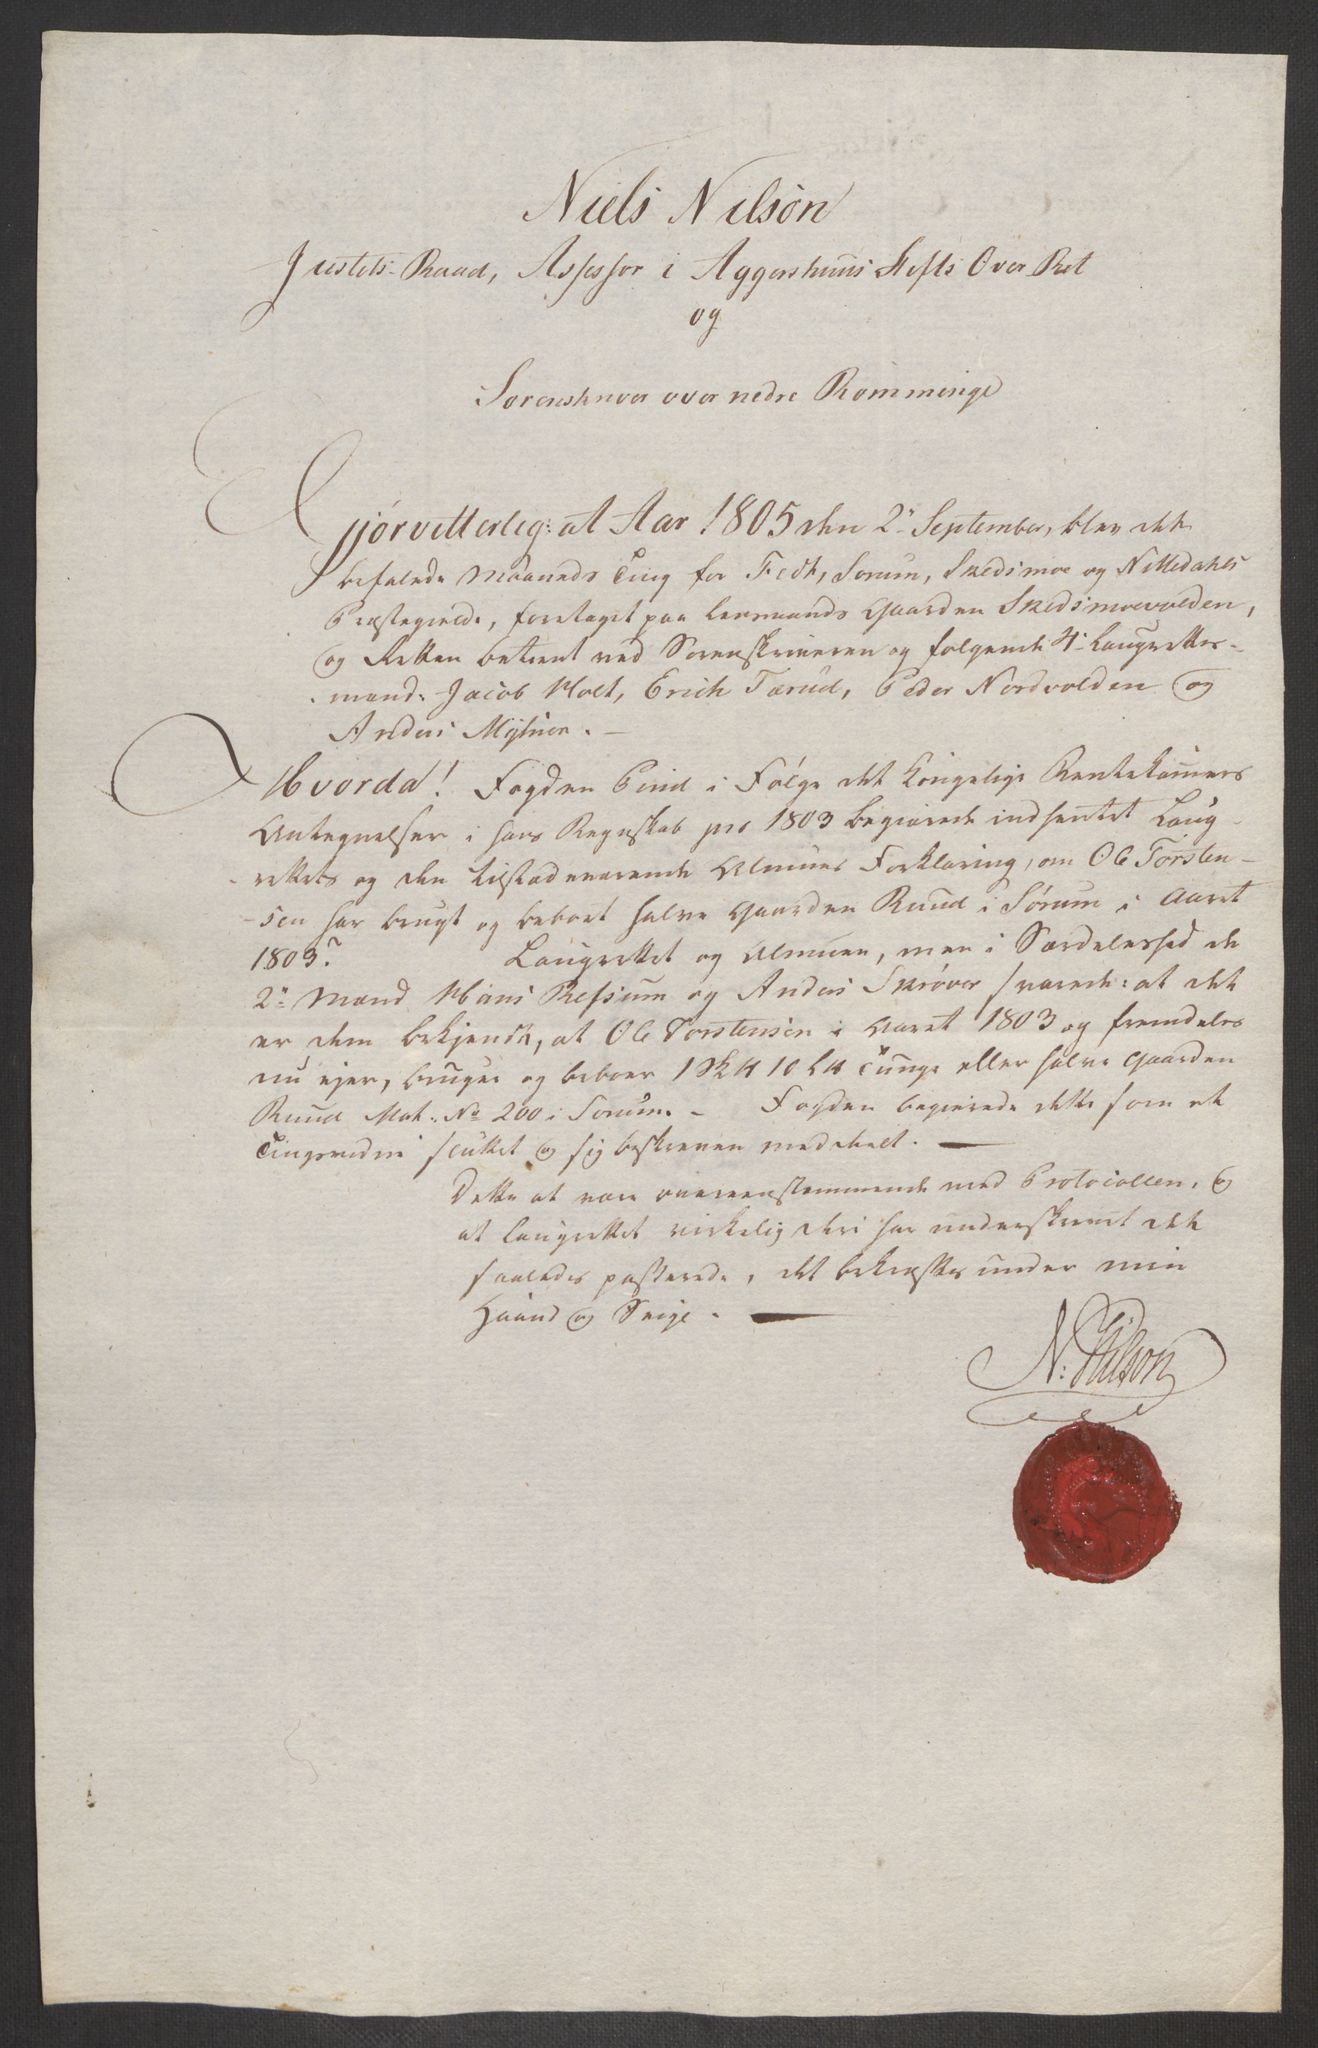 Niels Nilsøn
Justits Raad, Assessor i Aggershuus Stifts Over Ret
og
Sorenskriver over nedre Rommerige
Gjør vitterlig: at Aar 1805 den 2n September, blev det
befalede Maaneds Ting for Fedt, Sorum, Skedsmoe og Nittedahls
Præstegield, foretaget paa Lensmands Gaarden Skedsmoevolden,
og Retten betient ved Sorenskriveren og følgende 4 Laugrettes-
mænd: Jacob Holt, Erich Tærud, Peder Nordvolden og
Anders Myhrer. —
Hvorda! Fogden Pind i Følge det kongelige Rentekamers
Antegnelser i hans Regnskab pro 1803 begiærede indhentet Laug-
rettets og den tilstædeværende Almues Forklaring, om Ole Torsten-
sen har brugt og beboet halve Gaarden Ruud i Sørum i Aaret
1803? Laugrettet og Almuen, men i Særdeleshed de
2de Mænd Hans Refsum og Anders Skrøver svarede: at det
er dem bekjendt, at Ole Torstensen i Aaret 1803 og fremdeles
nu ejer, bruger og beboer 1 Sk℔ 10 L℔ Tunge eller halve Gaarden
Ruud Mat. No 200 i Sorum. – Fogden begierede dette som et
Tingsvidne sluttet og sig beskreven meddeelt. —
Dette at være overeenstemmende med Protocollen, og
at Laugrettet virkelig deri har underskrevet det
saaledes passerede, det bekræftes under min
Haand og Seigl. —
N: Nilson